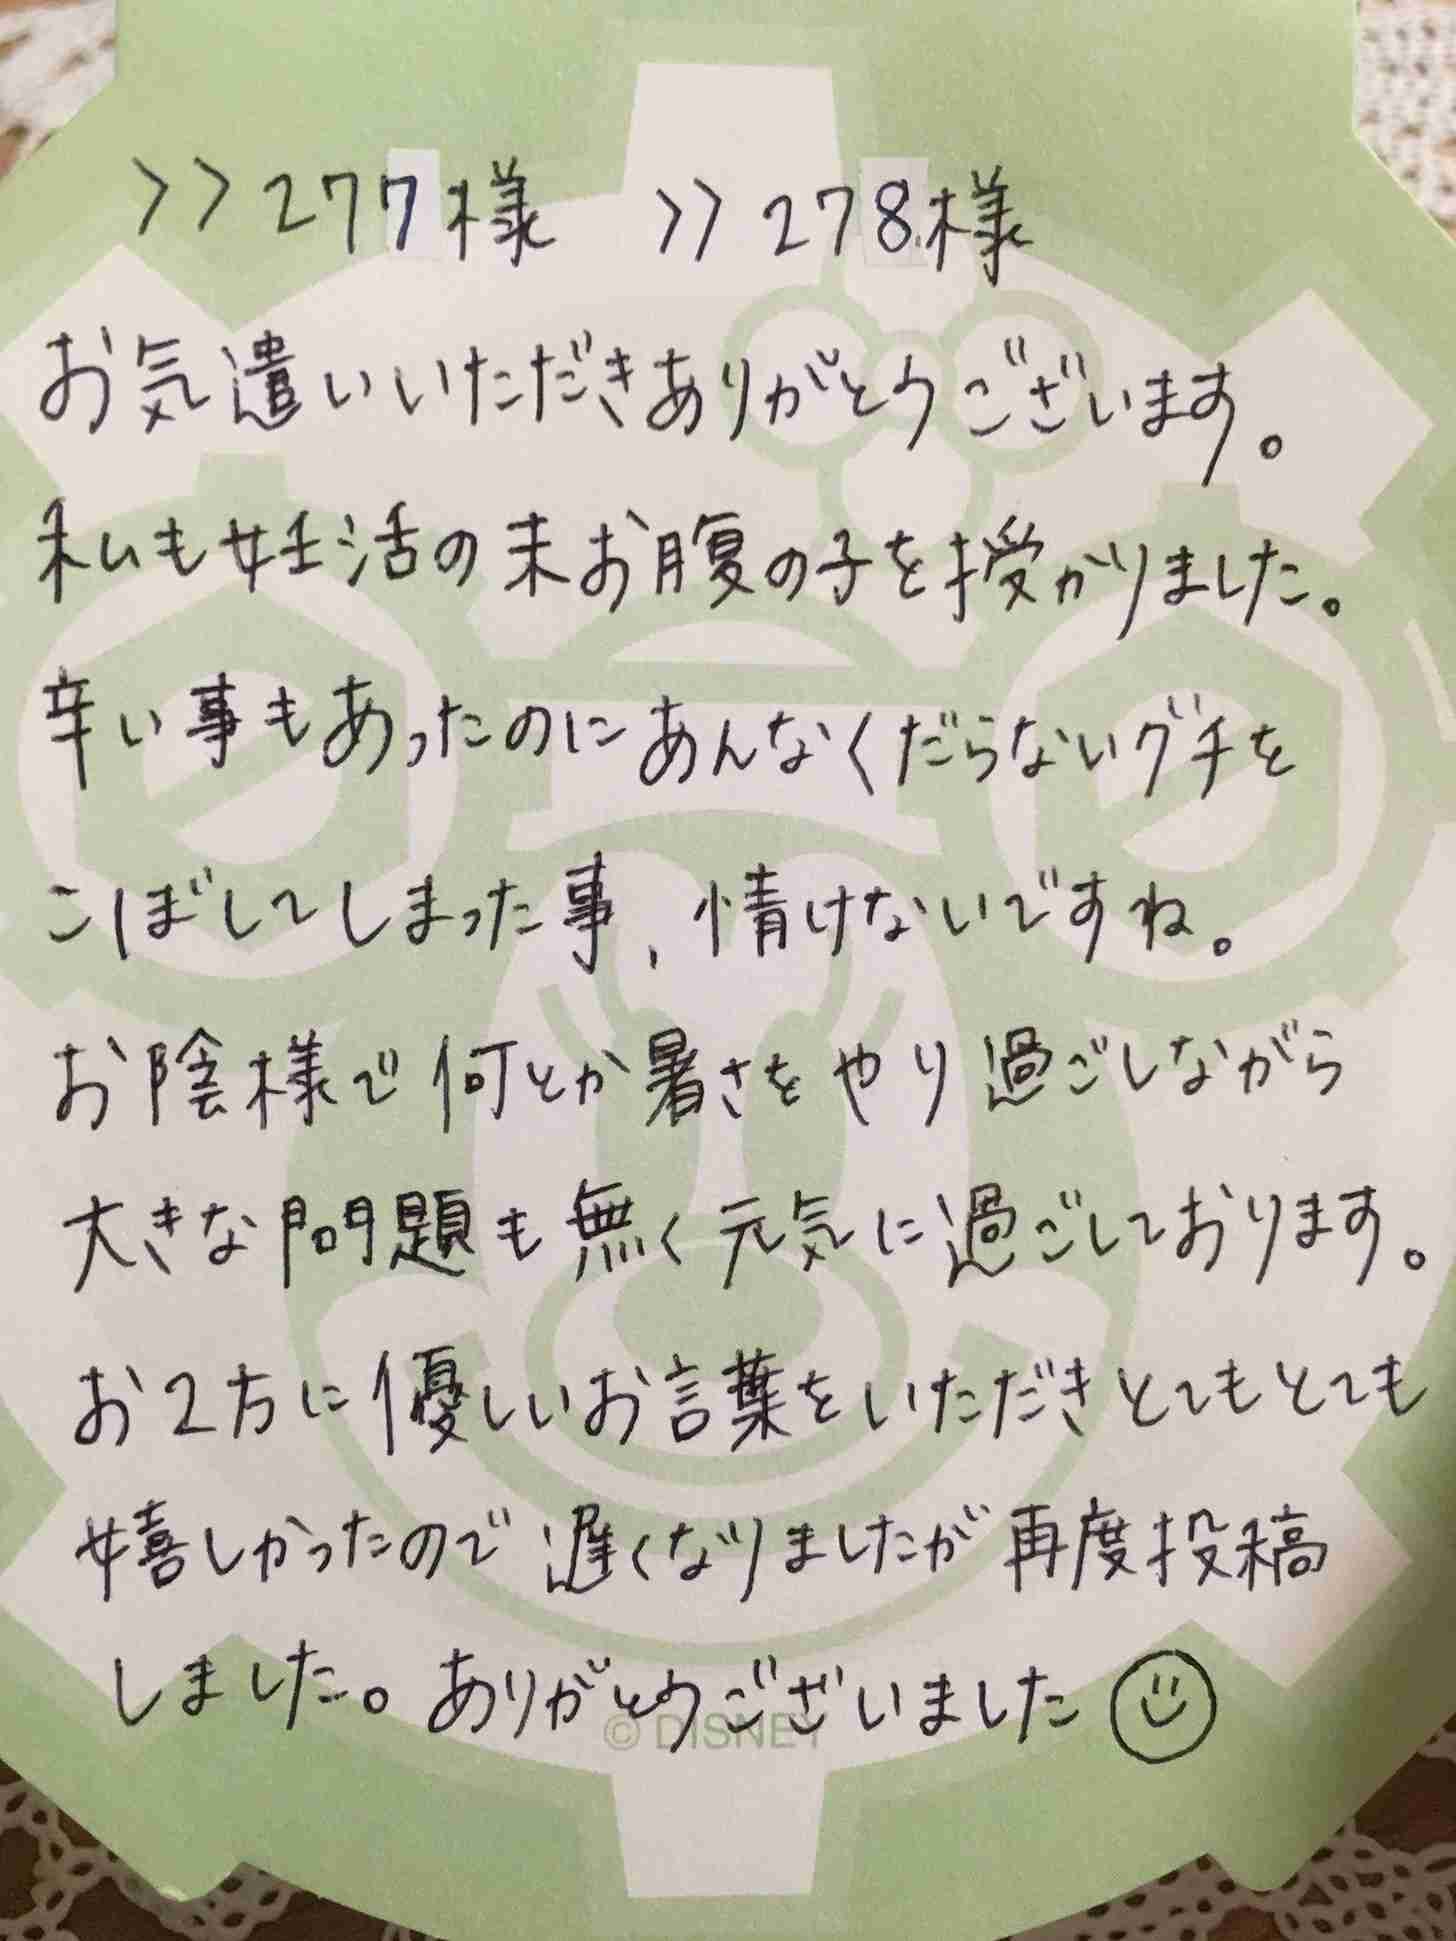 >>277様 >>278様
お気遣いいただきありがとうございます。
私も妊活の末お腹の子を授かりました。
辛い事もあったのにあんなくだらないグチを
こぼしてしまった事、情けないですね。
お陰様で何とか暑さをやり過ごしながら
大きな問題も無く元気に過ごしております。
お2方に優しいお言葉をいただきとてもとても
嬉しかったので遅くなりましたが再度投稿
しました。ありがとうございました
© DISNEY